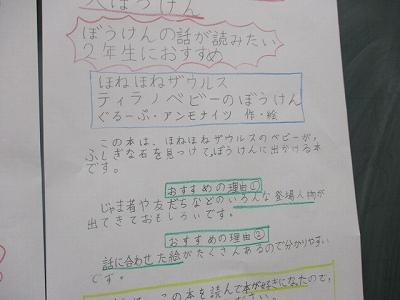 大ぼうけん
ぼうけんの話が読みたい
2年生におすすめ
ほねほねザウルス
ティラノベビーのぼうけん
ぐるーぷ・アンモナイツ 作・絵
この本は、ほねほねザウルスのベビーが、
ふしぎな石を見つけて、ぼうけんに出かける本
です。
おすすめの理由①
じゃま者や友だちなどのいろんな登場人物が
出てきておもしろいです。
おすすめの理由②
話に合わせた絵がたくさんあるので分かりやすい
です。
この本を読んで本が好きになったので、